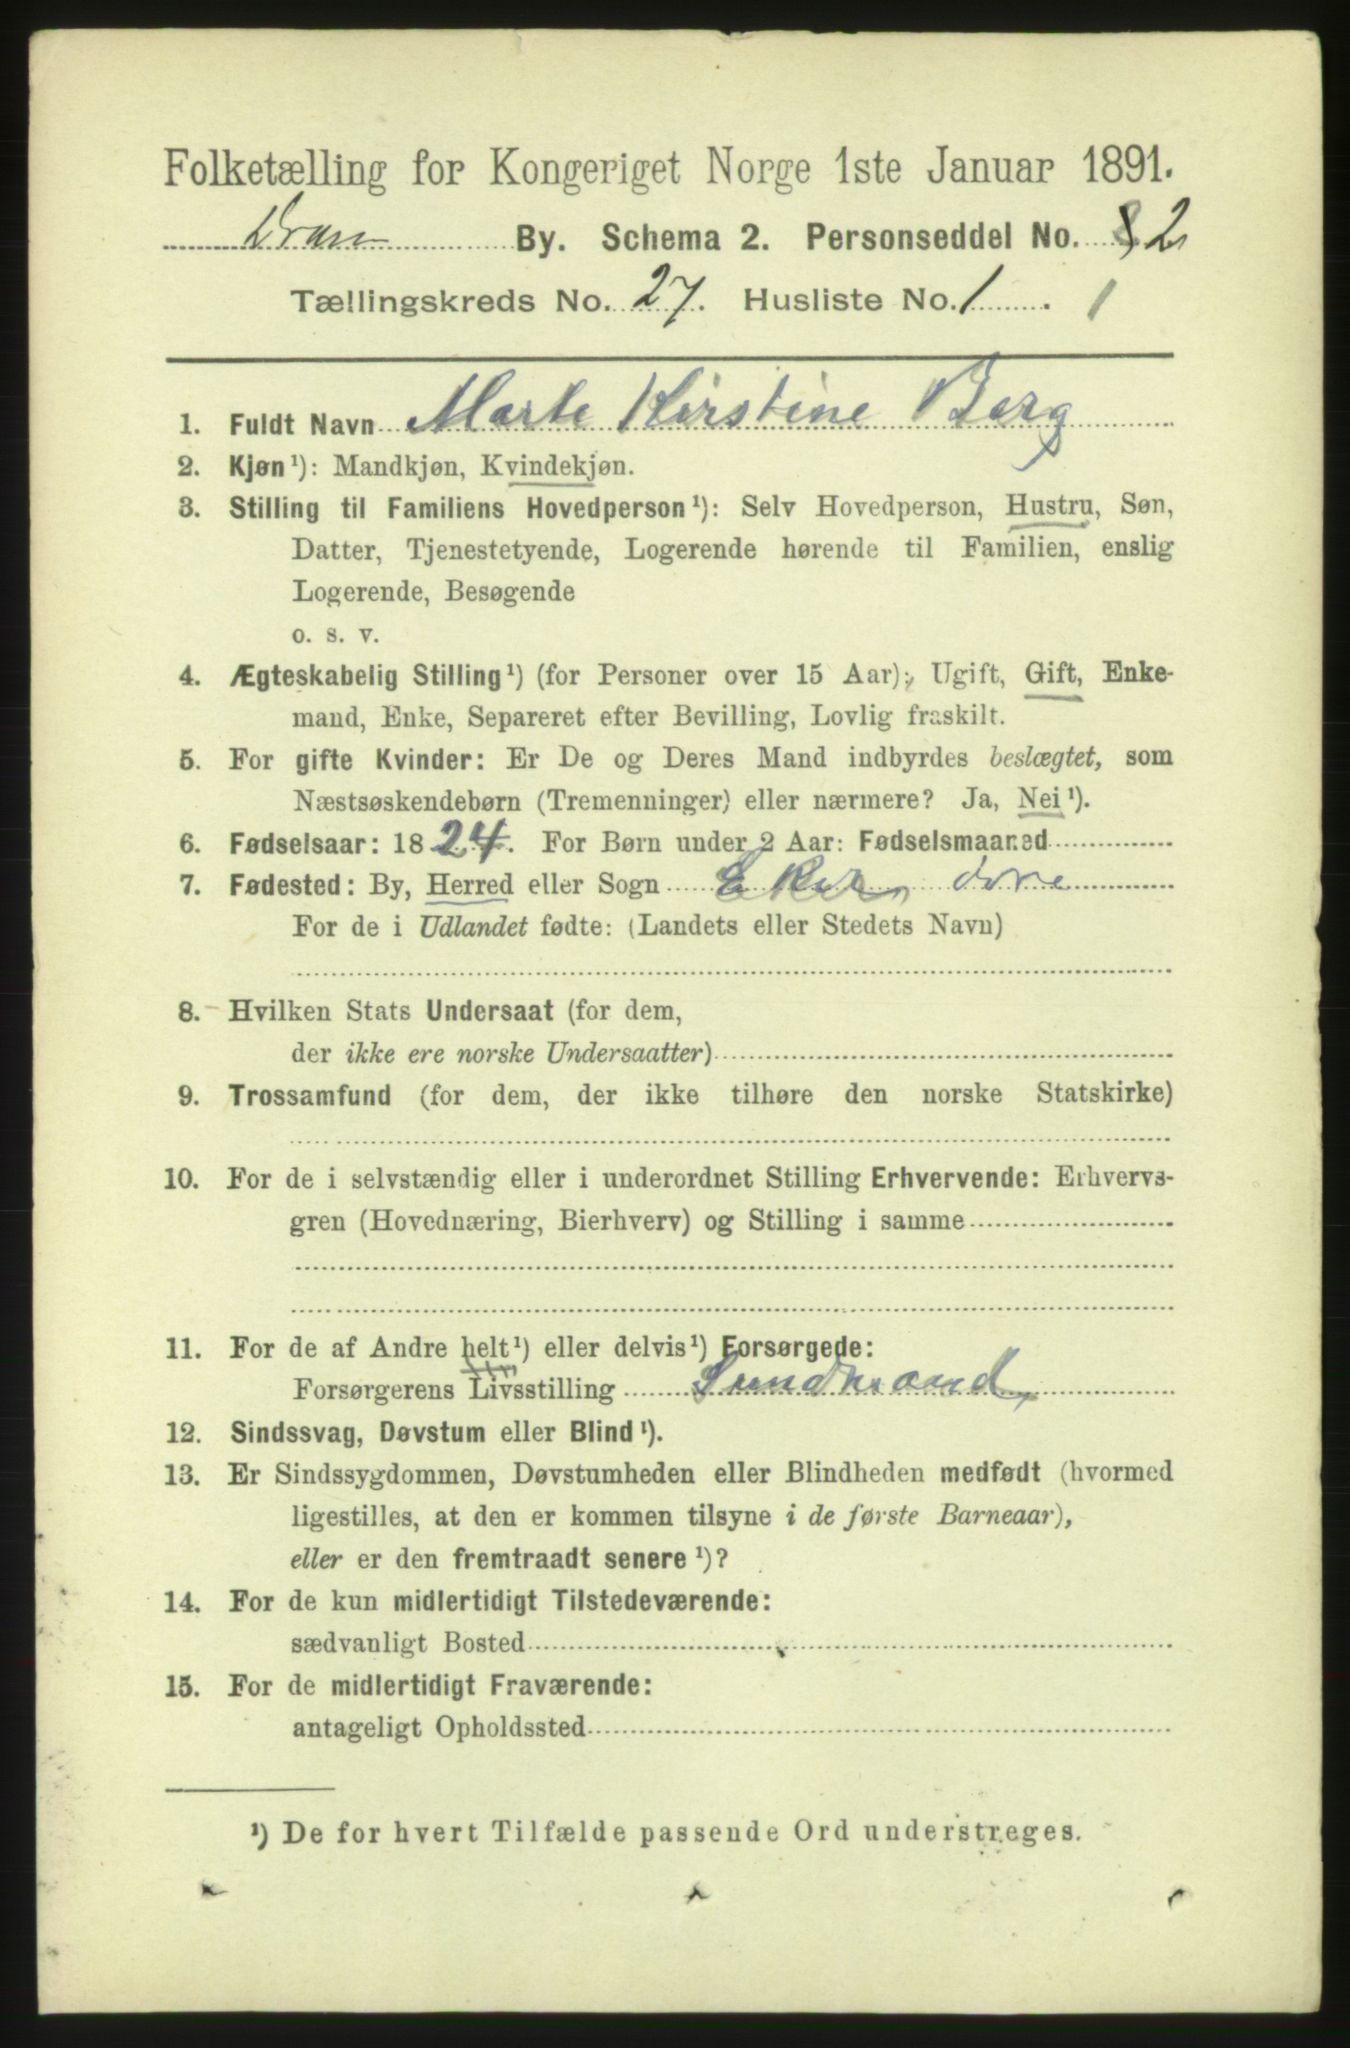 Folketælling for Kongeriget Norge 1ste Januar 1891.
Dram By. Schema 2. Personseddel No. 2
Tællingskreds No. 27. Husliste No. 1. 1
1. Fuldt Navn Marte Kirstine Berg
2. Kjøn¹): Mandkjøn, Kvindekjøn.
3. Stilling til Familiens Hovedperson¹): Selv Hovedperson, Hustru, Søn,
Datter, Tjenestetyende, Logerende hørende til Familien, enslig
Logerende, Besøgende
o. s. v.
4. Ægteskabelig Stilling¹) (for Personer over 15 Aar): Ugift, Gift, Enke-
mand, Enke, Separeret efter Bevilling, Lovlig fraskilt.
5. For gifte Kvinder: Er De og Deres Mand indbyrdes beslægtet, som
Næstsøskendebørn (Tremenninger) eller nærmere? Ja, Nei¹).
6. Fødselsaar: 1824. For Børn under 2 Aar: Fødselsmaaned
7. Fødested: By, Herred eller Sogn Eker
For de i Udlandet fødte: (Landets eller Stedets Navn)
8. Hvilken Stats Undersaat (for dem,
der ikke ere norske Undersaatter)
9. Trossamfund (for dem, der ikke tilhøre den norske Statskirke)
10. For de i selvstændig eller i underordnet Stilling Erhvervende: Erhvervs-
gren (Hovednæring, Bierhverv) og Stilling i samme
11. For de af Andre helt¹) eller delvis¹) Forsørgede:
Forsørgerens Livsstilling Sundmand
12. Sindssvag, Døvstum eller Blind¹).
13. Er Sindssygdommen, Døvstumheden eller Blindheden medfødt (hvormed
ligestilles, at den er kommen tilsyne i de første Barneaar),
eller er den fremtraadt senere¹)?
14. For de kun midlertidigt Tilstedeværende:
sædvanligt Bosted
15. For de midlertidigt Fraværende:
antageligt Opholdssted
¹) De for hvert Tilfælde passende Ord understreges.